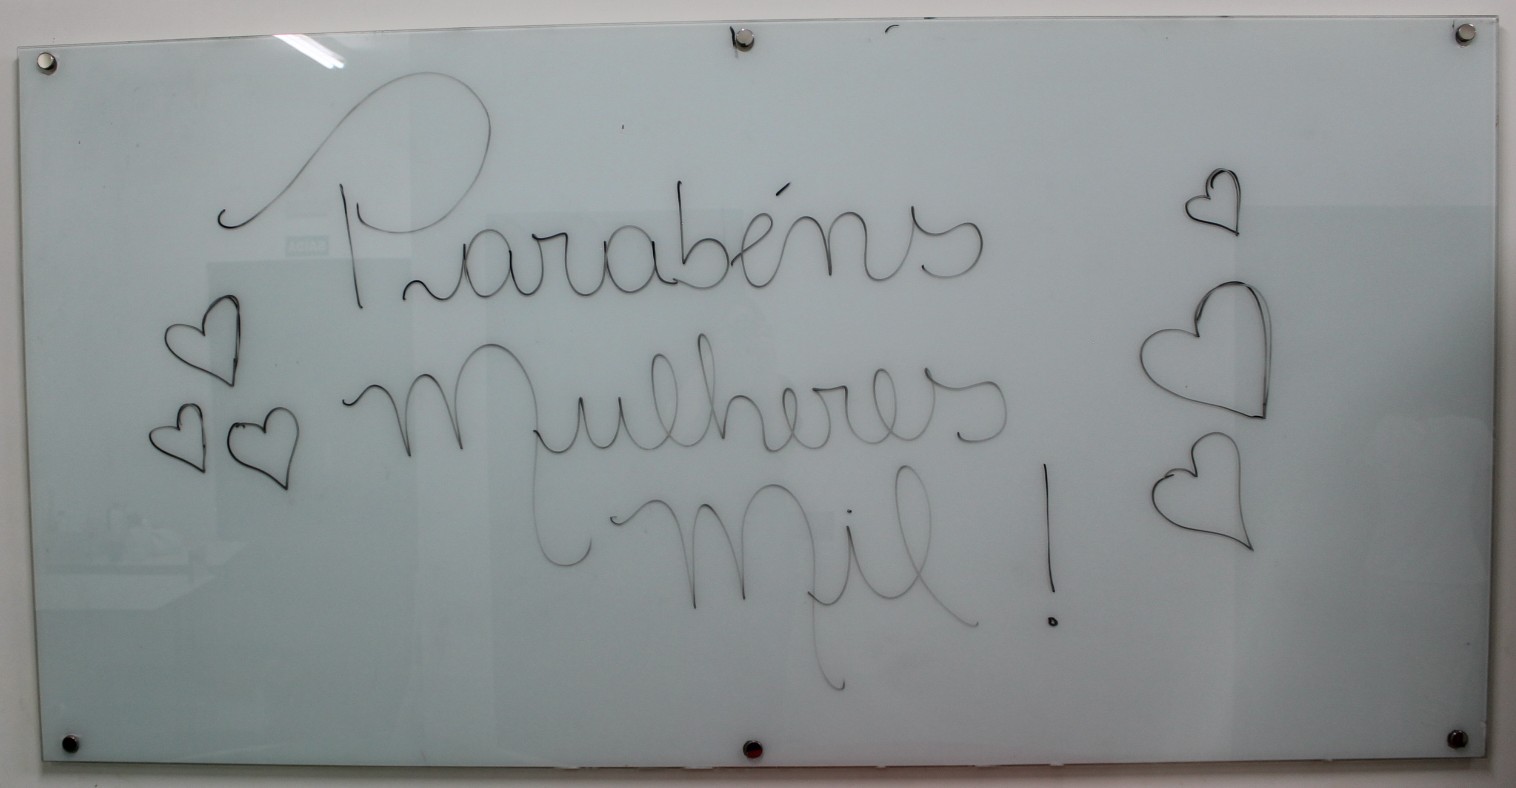 Parabéns
Mulheres
Mil!